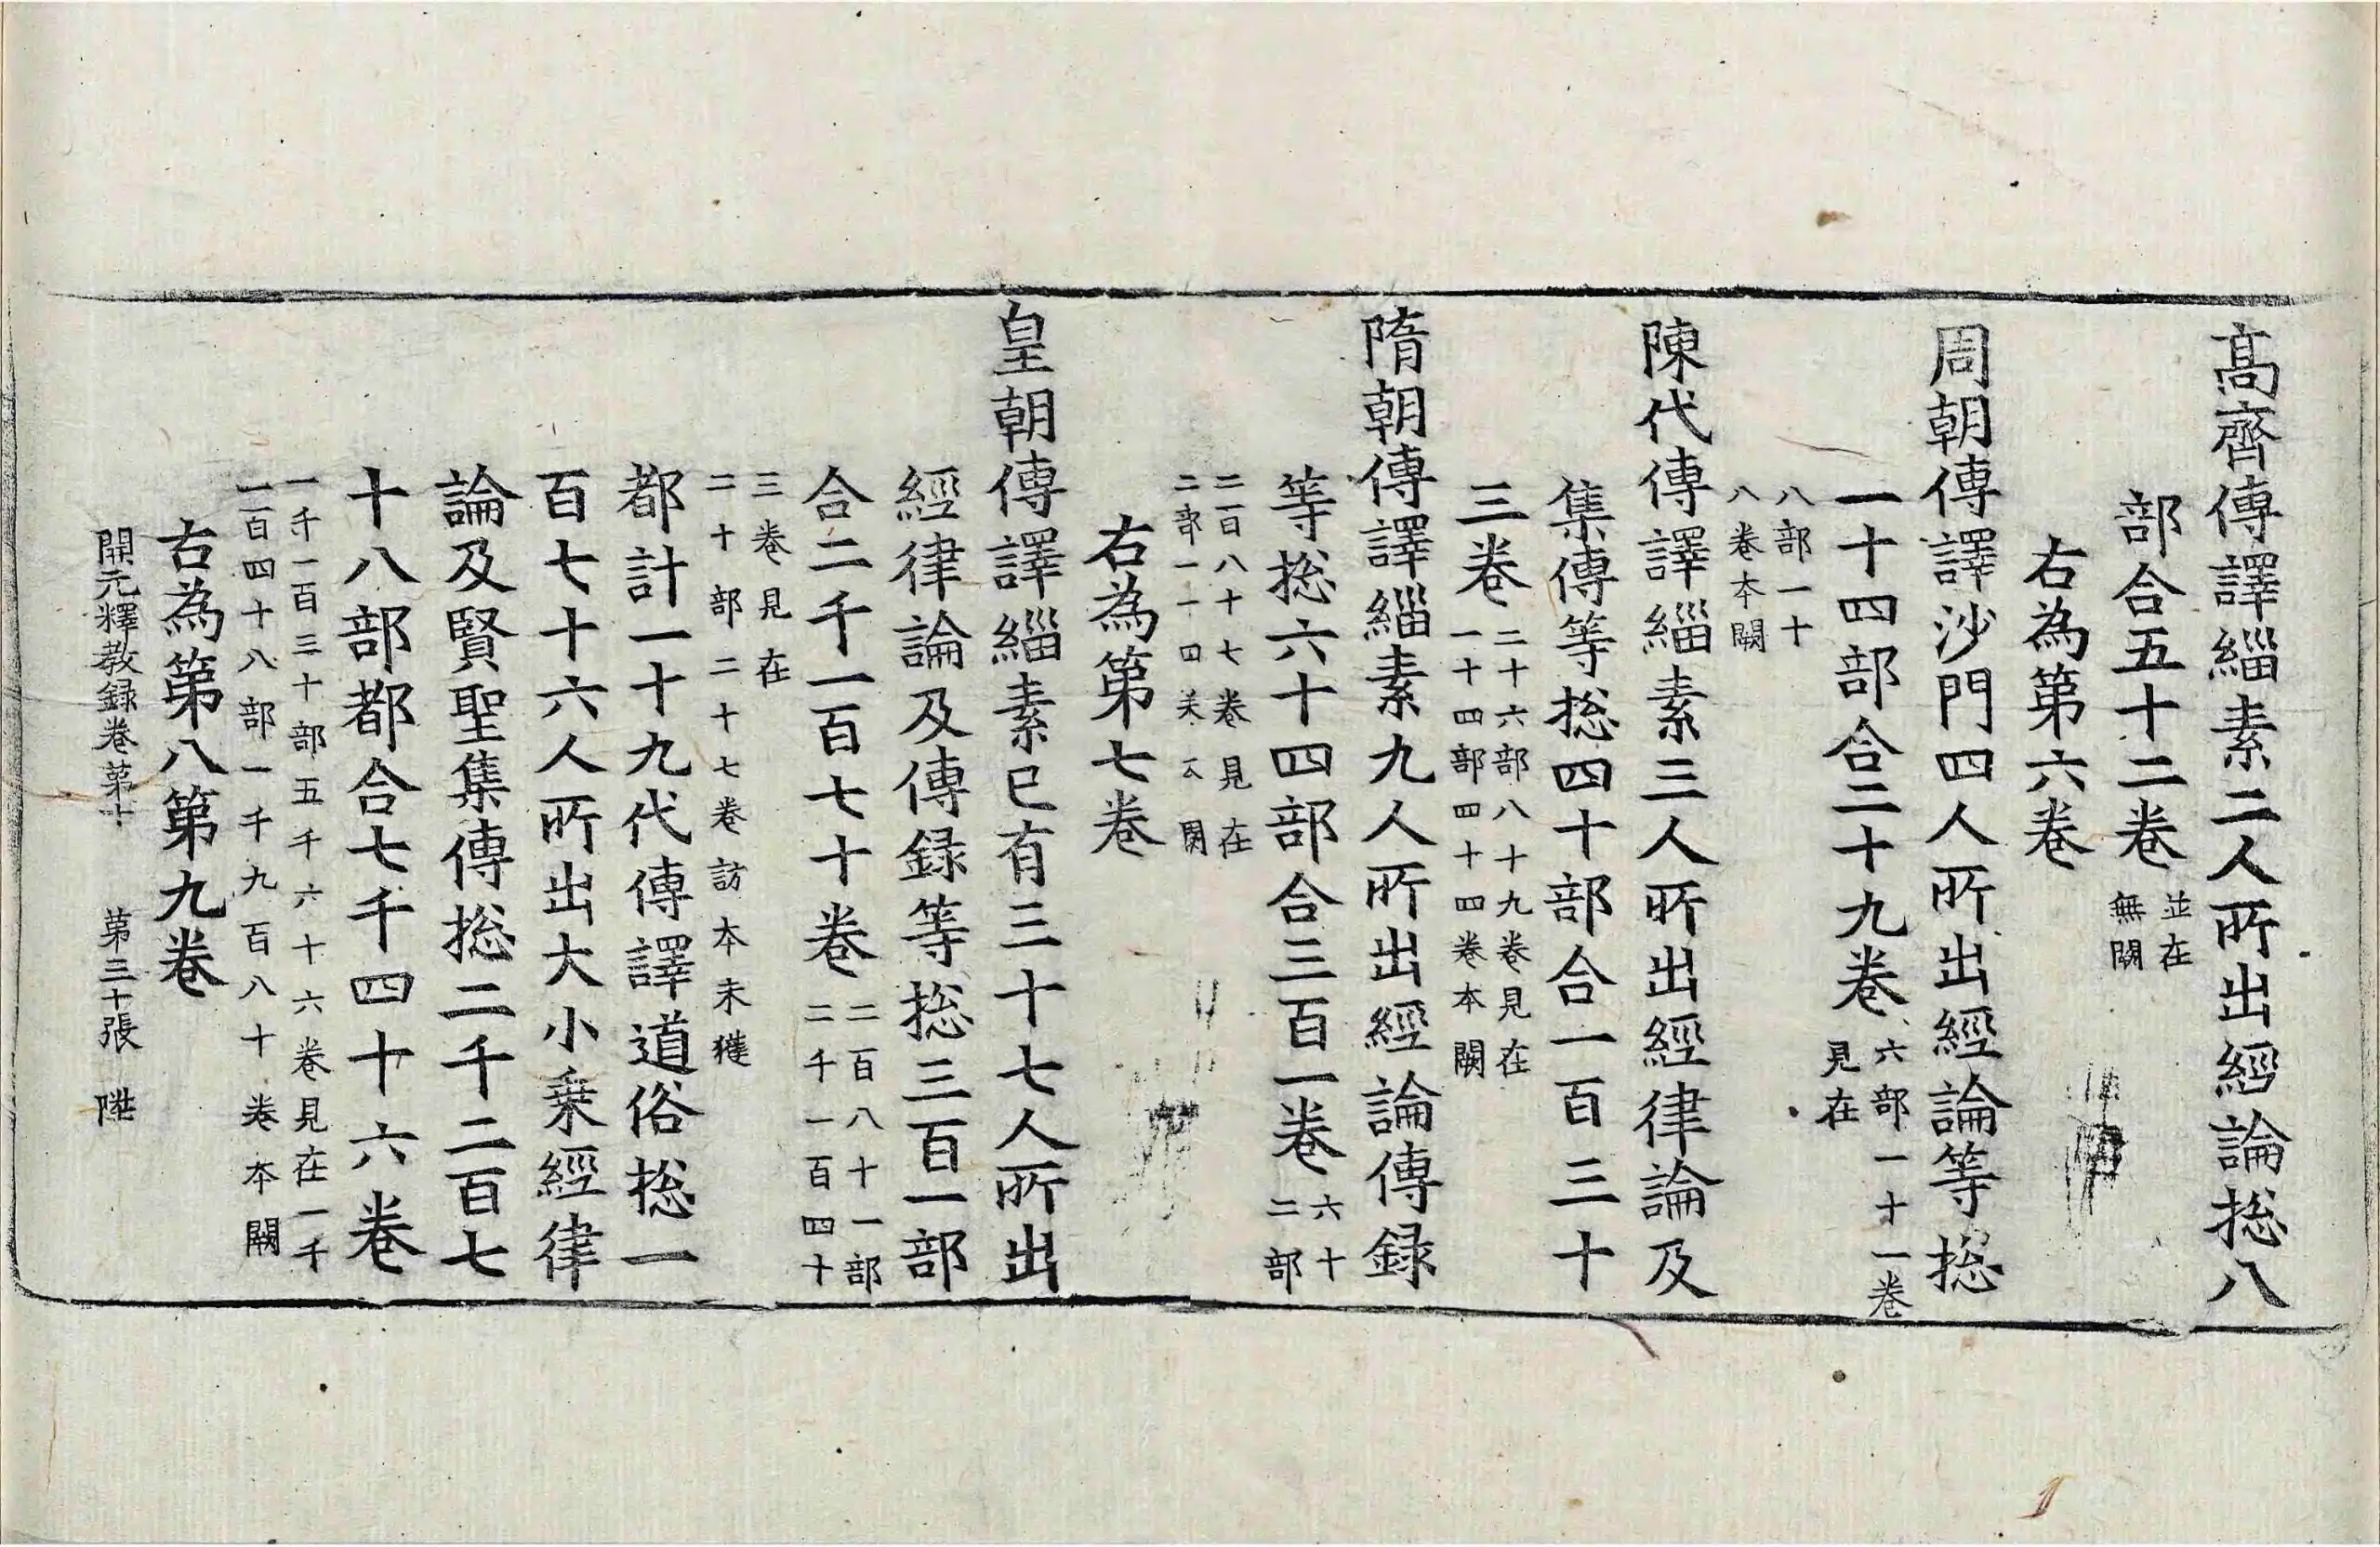 髙齊傳譯緇素二人所出經論捴八
部合五十二卷 並在
無闕
右為第六卷
周朝傳譯沙門四人所出經論等捴
一十四部合二十九卷 六部一十一卷
見在
八部一十
八卷本闕
陳代傳譯緇素三人所出經律論及
集傳等捴四十部合一百三十
三卷 二十六部八十九卷見在
一十四部四十四卷本闕
隋朝傳譯緇素九人所出經論傳録
等捴六十四部合三百一卷 六十
二部
二百八十七卷見在
二部一十四
右為第七卷
皇朝傳譯緇素已有三十七人所出
經律論及傳録等捴三百一部
合二千一百七十卷 二百八十一部
二千一百四十
三卷見在
二十部二十七卷訪本未獲
都計一十九代傳譯道俗捴一
百七十六人所出大小乗經律
論及賢聖集傳捴二千二百七
十八部都合七千四十六卷
一千一百三十部五千六十六卷見在一千
一百四十八部一千九百八十卷本闕
右為第八第九卷
開元釋教録卷苐十 第三十張